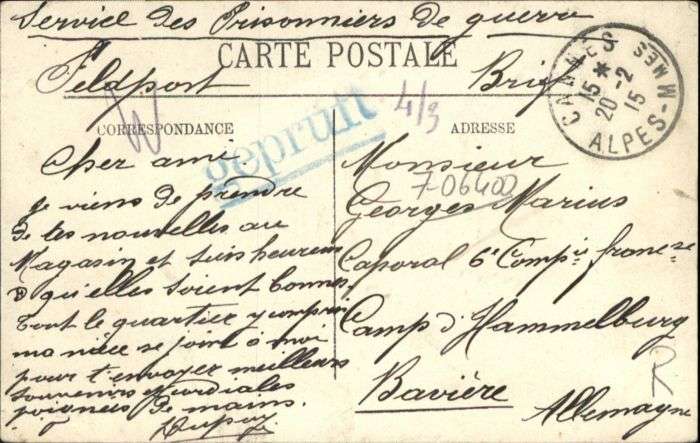 Service des Prisonniers de guerre
CARTE POSTALE
Feldpost Brief
CANNES
15 *
20 -2
15
ALPES-MMES
W
geprüft
4/3
CORRESPONDANCE
ADRESSE
Cher ami
je viens de prendre
de tes nouvelles au
Magasin et suis heureux
qu'elles soient bonnes.
Tout le quartier y compris
ma nièce se joint à moi
pour t'envoyer meilleurs
souvenirs & cordiales
poignées de mains.
Dupuy
Monsieur
7-06400
Georges Marius
Caporal 6e Compie francse
Camp d'Hammelburg
Bavière
Allemagne
R